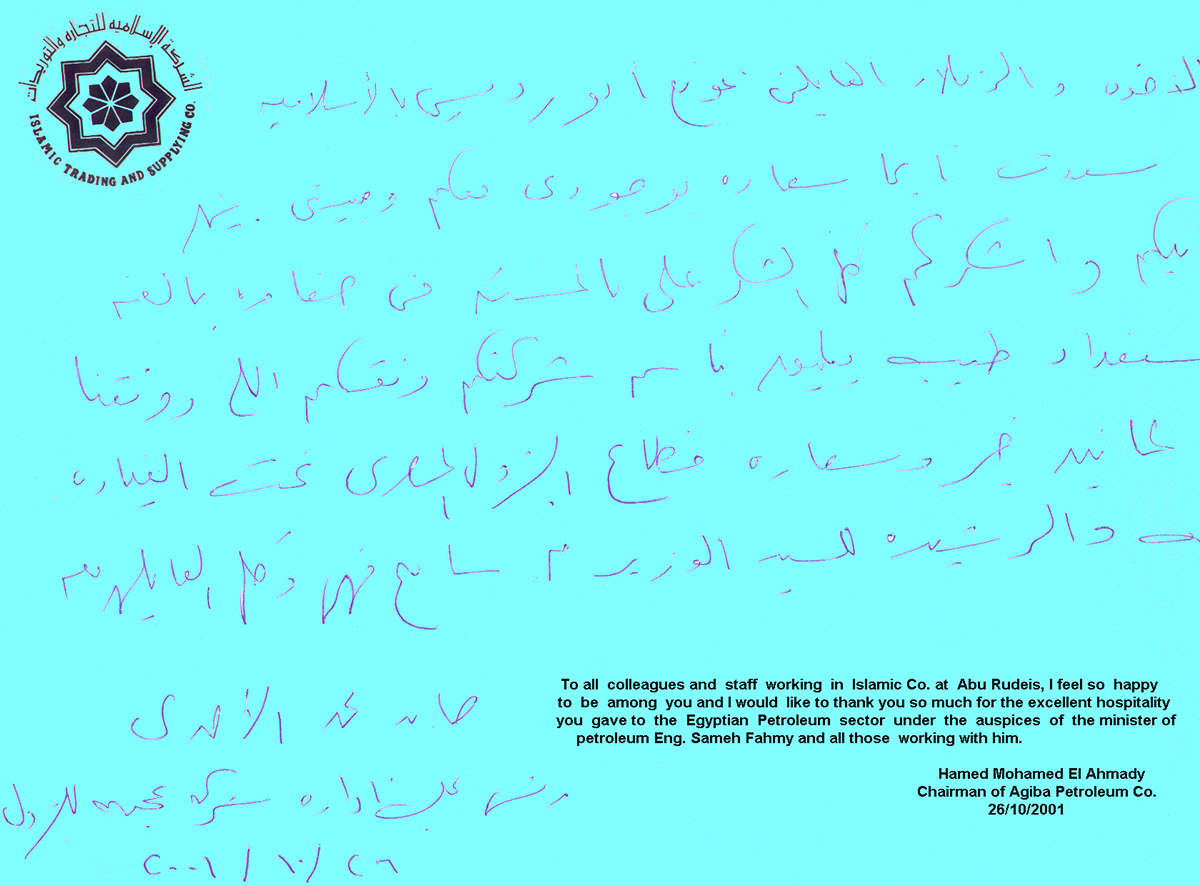 الشركة الإسلاميه للتجاره والتوريدات
ISLAMIC TRADING AND SUPPLYING CO.
و الزملاء العاملين بموقع أبو رديس بالأسلاميه
سعدت أيما سعاده بوجودى معكم
واشكركم كل الشكر على فى حفاوه بالغه
طيب يليق باسم شركتكم وفقكم الله ووفقنا
لما فيه خير وسعاده قطاع البترول المصرى تحت القياده
والرشيده للسيد الوزير م. سامح فهمى وكل العاملين معه
حامد محمد الأحمدى
رئيس مجلس اداره شركه عجيبه للبترول
٢٠٠١/١٠/٢٦
To all colleagues and staff working in Islamic Co. at Abu Rudeis, I feel so happy
to be among you and I would like to thank you so much for the excellent hospitality
you gave to the Egyptian Petroleum sector under the auspices of the minister of
petroleum Eng. Sameh Fahmy and all those working with him.
Hamed Mohamed El Ahmady
Chairman of Agiba Petroleum Co.
26/10/2001